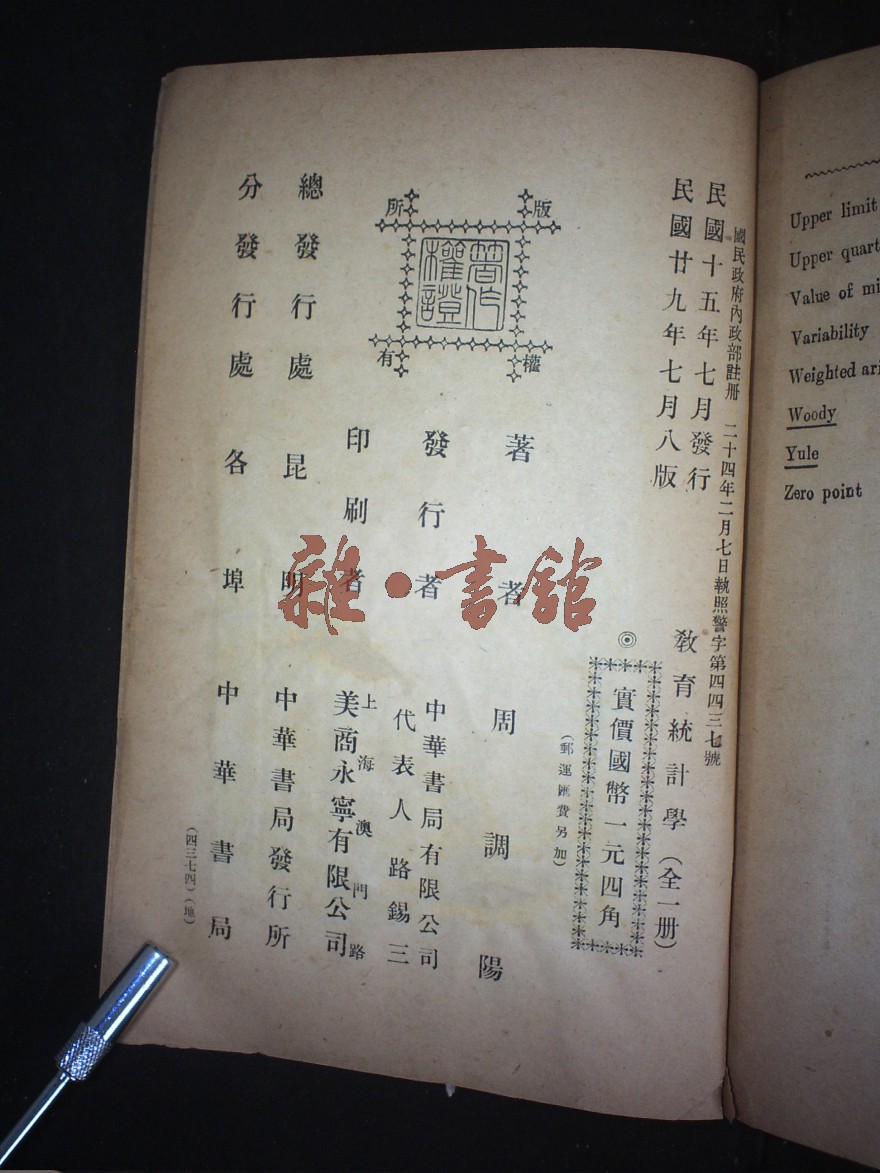 國民政府內政部註冊 二十四年二月七日執照警字第四四三七號
民國十五年七月發行
民國廿九年七月八版
教育統計學（全一冊）
◎實價國幣一元四角
（郵運匯費另加）
版權所有
著作權證
著者 周調陽
發行者 中華書局有限公司
代表人 路錫三
印刷者 上海澳門路
美商永寧有限公司
總發行處 昆明 中華書局發行所
分發行處 各埠 中華書局
（四三七四）（地）
雜·書館
Upper limit
Upper quart
Value of mi
Variability
Weighted ari
Woody
Yule
Zero point